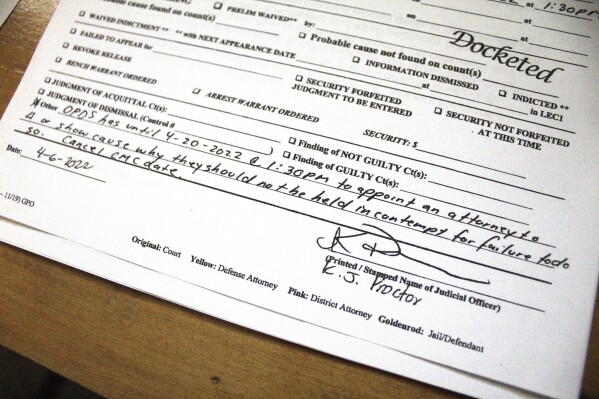 at 1:30pm
☐ PRELIM WAIVED**
at
cause found on count(s)
by:
☐ Probable cause not found on count(s)
at
Docketed
☐ WAIVED INDICTMENT ** ** with NEXT APPEARANCE DATE
☐ INFORMATION DISMISSED
☐ INDICTED **
☐ FAILED TO APPEAR for
at
in LEC1
☐ REVOKE RELEASE
☐ SECURITY FORFEITED
JUDGMENT TO BE ENTERED
☐ SECURITY NOT FORFEITED
AT THIS TIME
☐ BENCH WARRANT ORDERED
☐ ARREST WARRANT ORDERED
SECURITY: $
☐ JUDGMENT OF ACQUITTAL Ct(s):
☐ Finding of NOT GUILTY Ct(s):
☐ JUDGMENT OF DISMISSAL (Control #
)
☐ Finding of GUILTY Ct(s):
Other OPDS has until 4-20-2022 @ 1:30pm to appoint an attorney to
Δ or show cause why they should not be held in contempt for failure to do
so. Cancel CMC date.
Date: 4-6-2022
(Printed / Stamped Name of Judicial Officer)
K. J. Proctor
11/19) GPO
Original: Court Yellow: Defense Attorney Pink: District Attorney Goldenrod: Jail/Defendant